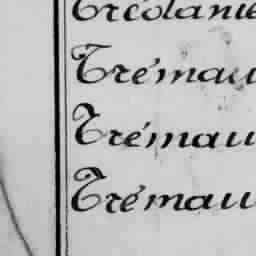 Trécolanie
Trémau
Trémau
Trémau